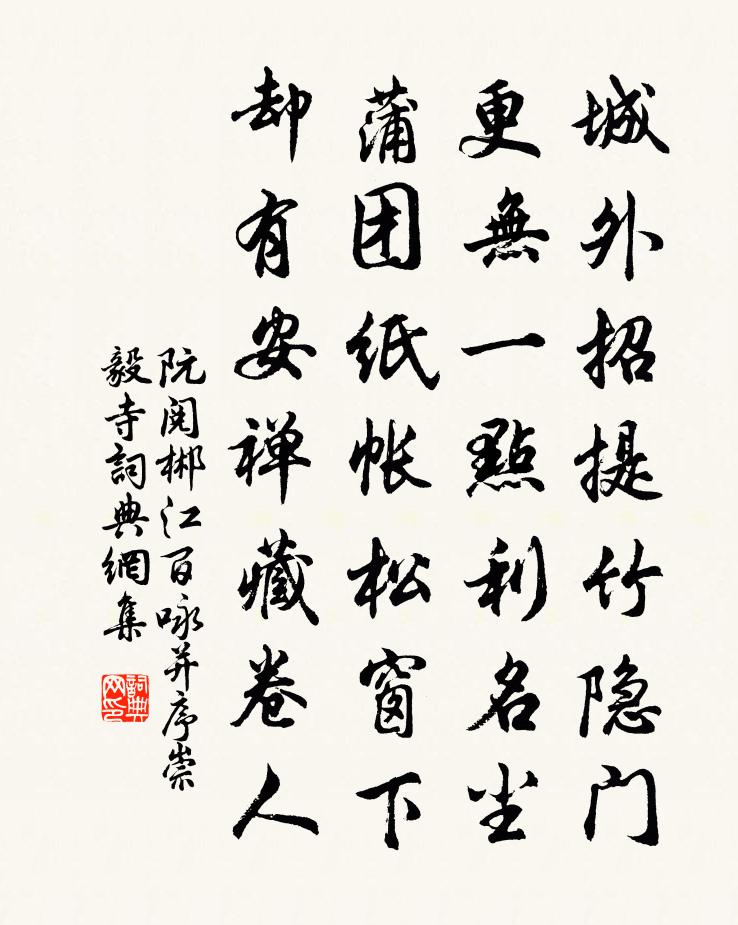 城外招提竹隐门
更無一點利名尘
蒲团纸帐松窗下
却有安禅藏卷人
阮閱郴江百咏并序崇
毅寺詞典網集
詞典网印